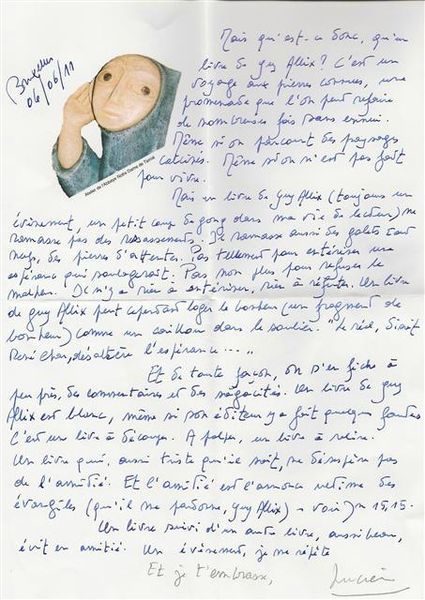 Bruxelles
06/06/11
Atelier de l'Abbaye Notre-Dame de Tournai
Mais qu'est-ce donc, qu'un
livre de Guy Allix ? C'est un
voyage aux pierres connues, une
promenade que l'on peut refaire
de nombreuses fois sans ennui.
Même si on parcourt des paysages
Même si on n'est pas fait
pour vivre.
Mais un livre de Guy Allix (toujours un
événement, un petit coup de gong dans ma vie de lecteur) ne
ramasse pas des ressassements. Je ramasse aussi des galets tout
nus, des pierres d'attente. Pas tellement pour entériser une
espérance qui soulagerait. Pas non plus pour refuser le
malheur. Il n'y a rien à entériser, rien à réfuter. Un livre
de Guy Allix peut cependant loger le bonheur (un fragment de
bonheur) comme un caillou dans le soulier. "Le réel, disait
René Char, désaltère l'espérance....."
Et de toute façon, on s'en fiche à
peu près, des commentaires et des sagacités. Un livre de Guy
Allix est blanc, même si son éditeur y a fait quelques fautes
C'est un livre à découper. A palper, un livre à relire.
Un livre qui, aussi triste qu'il soit, ne désespère pas
de l'amitié. Et l'amitié est l'annonce ultime des
évangiles (qu'il me pardonne, Guy Allix) - voir Jn 15,15.
Un livre suivi d'un autre livre, aussi beau,
écrit en amitié. Un événement, je me répète
Et je t'embrasse,
Lucien